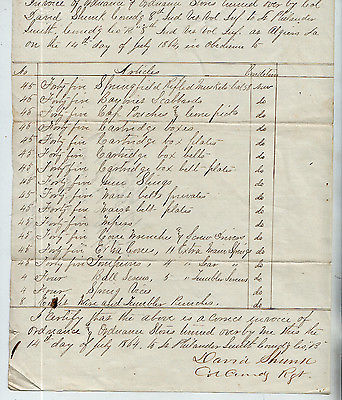 Invoice of Ordnance & Ordnance Stores turned over by Col
David Shunk Comdg 8th Ind Vet Vol Inf to Lt Philander
Smith Comdg Co "B" 8th Ind Vet Vol Inf at Algiers La
on the 14th day of July 1864, in obedience to
No Articles Condition
45 Forty five Springfield Rifled Muskets Cal 58 New
45 Forty five Bayonet Scabbards do
45 Forty five Cap Pouches & Cone picks do
45 Forty five Cartridge boxes do
45 Forty five Cartridge box plates do
45 Forty five Cartridge box belts do
45 Forty five Cartridge box belt plates do
45 Forty five Gun Slings do
45 Forty five Waist belts privates do
45 Forty five Waist belt plates do
45 Forty five Wipers do
45 Forty five Cone Wrenches & Screw Drivers do
45 Forty five Extra Cones, 4 Extra Main Springs do
45 Forty five Tompions, 4 " Sear do do
4 Four Ball Screws, 5 " Tumbler Screws do
4 Four Spring Vices do
8 Eight Wire and Tumbler Punches. do
I certify that the above is a correct invoice of
Ordnance & Ordnance Stores turned over by me this the
14th day of July 1864, to Lt Philander Smith Comdg Co "B"
David Shunk
Col Comdg Rgt.